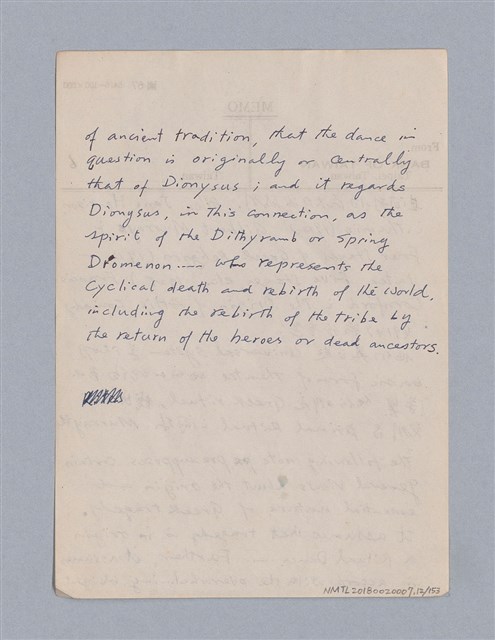 of ancient tradition, that the dance in
question is originally or centrally
that of Dionysus ; and it regards
Dionysus, in this connection, as the
spirit of the Dithyramb or Spring
Dromenon ..... who represents the
cyclical death and rebirth of the world,
including the rebirth of the tribe by
the return of the heroes or dead ancestors.
NMTL20180020007.12/153